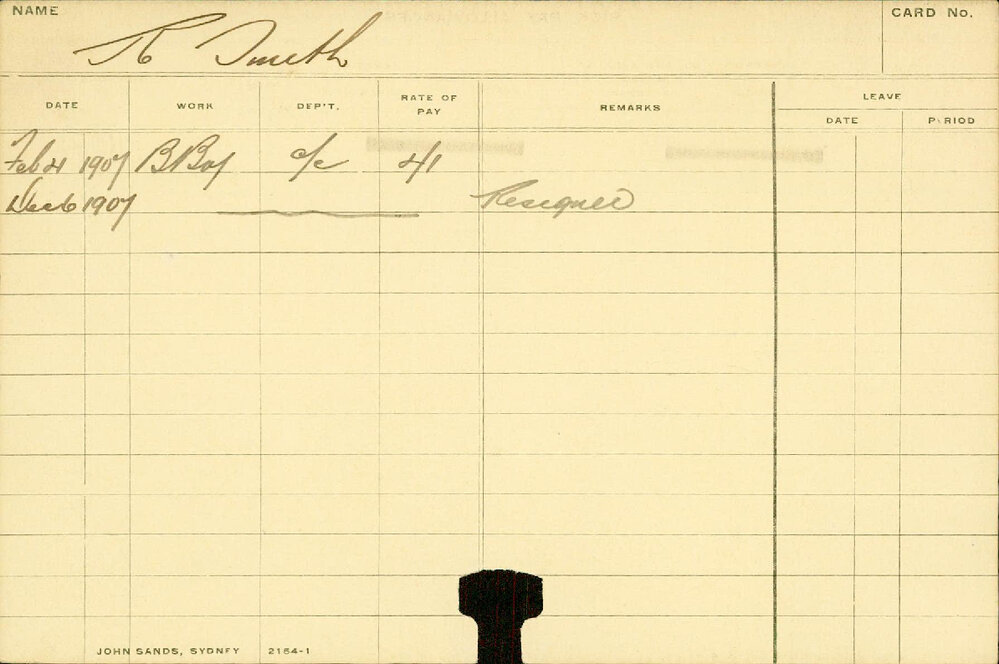 NAME R Smith CARD No.
DATE WORK DEP'T. RATE OF PAY REMARKS LEAVE DATE PERIOD
Feb 21 1907 B Boy c/c 4/1
Dec 6 1907 Resigned
JOHN SANDS, SYDNEY 2164-1